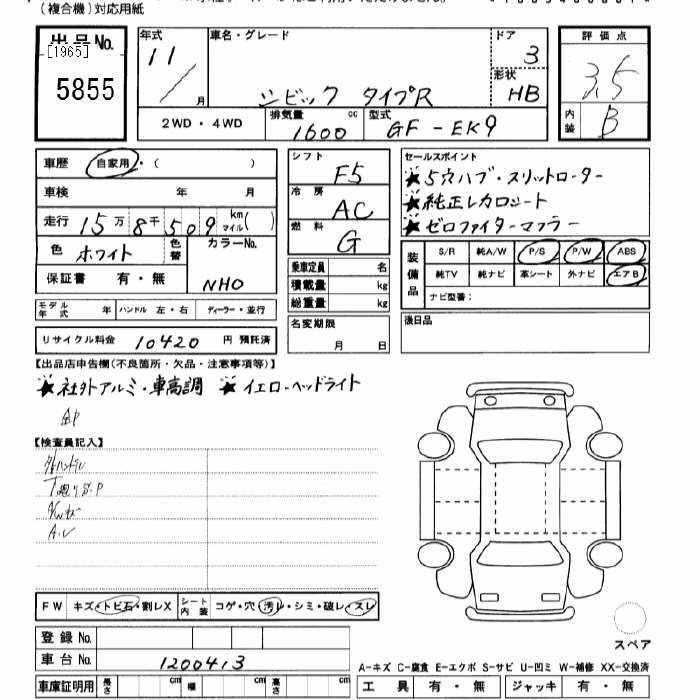 (複合機)対応用紙
出品No.
[1965]
5855
年式
11
月
車名・グレード
シビック タイプR
ドア
3
形状
HB
2WD・4WD
排気量
1600 cc
型式
GF-EK9
評価点
3.5
内装
B
車歴 自家用・( )
車検 年 月
走行 15万8千509 km マイル( )
色 ホワイト 色替
カラーNo.
NHO
保証書 有・無
モデル年式 年 ハンドル 左・右 ディーラー・並行
リサイクル料金 10420 円 預託済
シフト
F5
冷房
AC
燃料
G
乗車定員 名
積載量 kg
総重量 kg
名変期限
月 日
セールスポイント
★5穴ハブ・スリットローター
★純正レカロシート
★ゼロファイターマフラー
装備品
S/R 純A/W P/S P/W ABS
純TV 純ナビ 革シート 外ナビ エアB
ナビ型番:
後日品
【出品店申告欄(不良箇所・欠品・注意事項等)】
★社外アルミ・車高調 ★イエローヘッドライト
【検査員記入】
外ハンドル
FW キズ・トビ石・割レX シート内装 コゲ・穴・汚レ・シミ・破レ・スレ
登録No.
車台No. 1200413
車庫証明用 長さ cm 幅 cm 高さ cm
スペア
A-キズ C-腐食 E-エクボ S-サビ U-凹ミ W-補修 XX-交換済
工具 有・無 ジャッキ 有・無